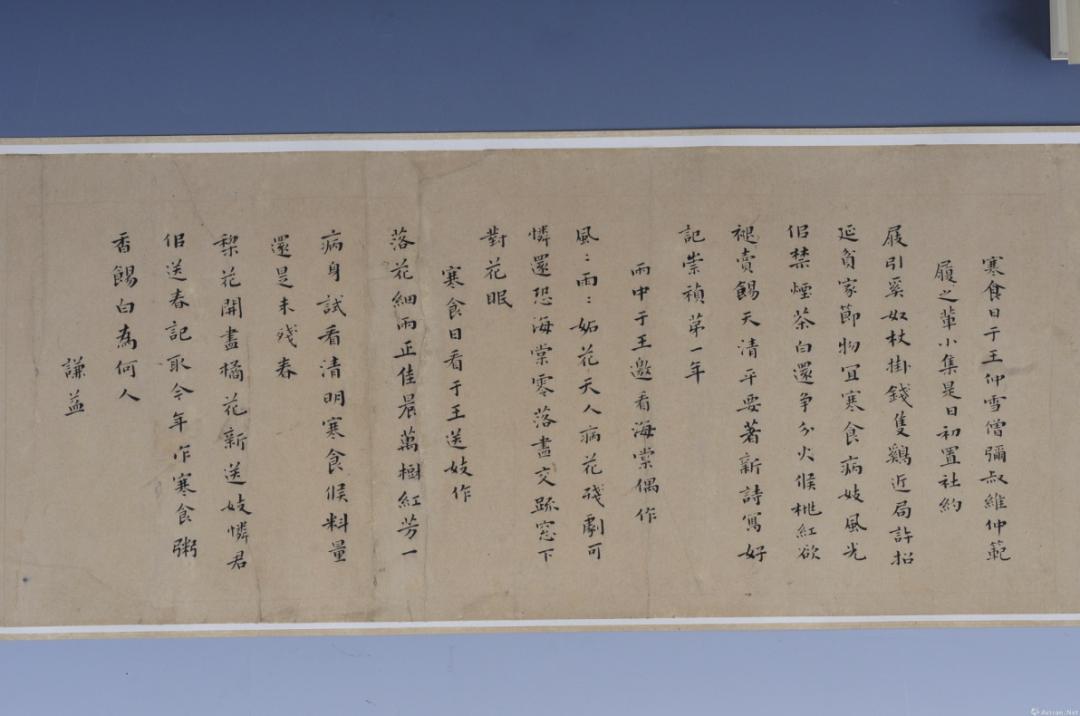 寒食日于王仲雪僧彌叔維仲範
履之輩小集是日初置社約
屐引奚奴杖掛錢隻鷄近局許招
延貧家節物冝寒食病妓風光
侶禁煙茶白還争分火候桃紅欲
褪賣餳天清平要著新詩寫好
記崇禎苐一年
雨中于王邀看海棠偶作
風：雨：妬花天人病花殘劇可
憐還恐海棠零落盡交疏窓下
對花眠
寒食日看于王送妓作
落花細雨正佳晨萬樹紅芳一
病身試看清明寒食候料量
還是未殘春
棃花開盡橘花新送妓憐君
侣送春記取今年作寒食粥
香餳白為何人
謙益
Artron.Net